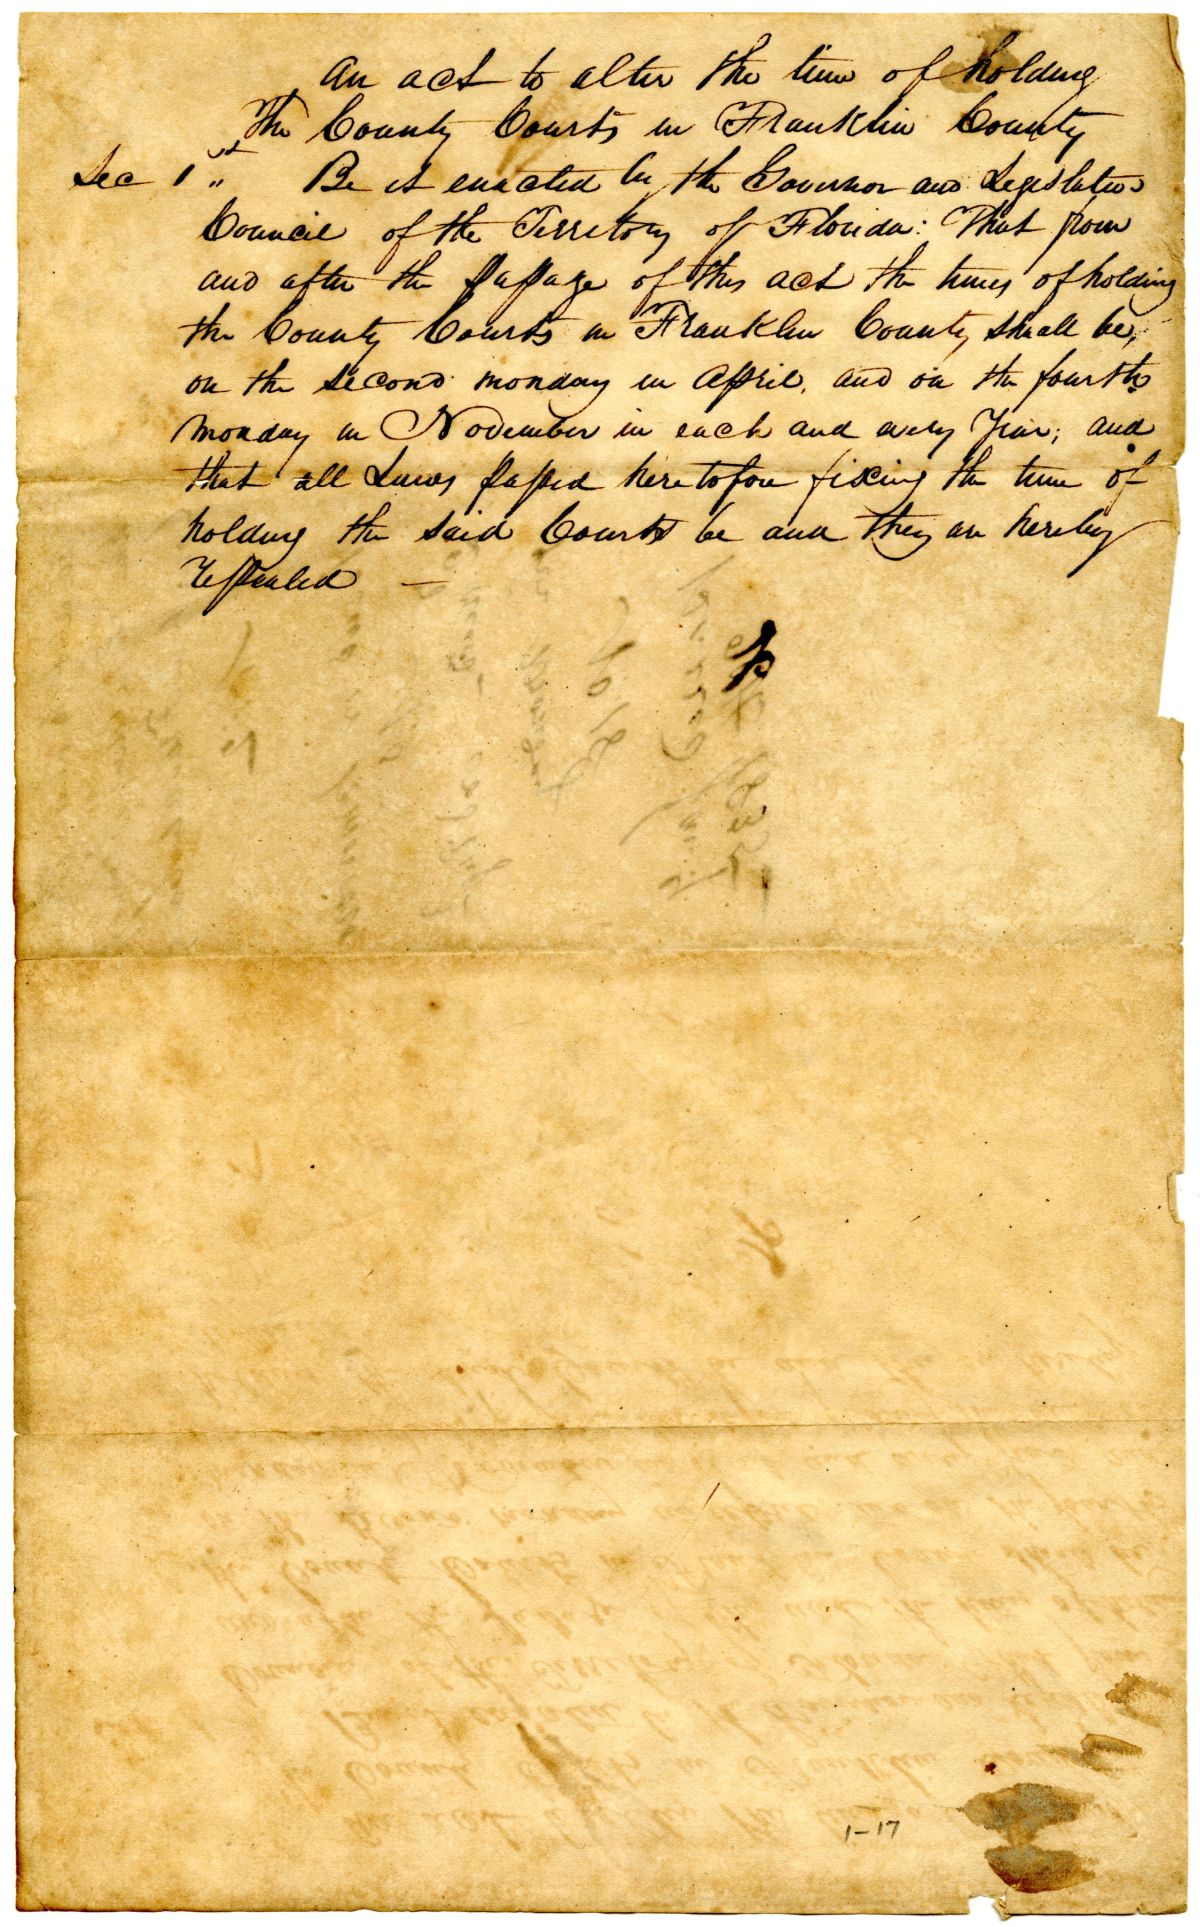 An act to alter the time of holding
The County Courts in Franklin County
Sec 1st " Be it enacted by the Governor and Legislative
Council of the Territory of Florida: That from
and after the passage of this act the times of holding
the County Courts in Franklin County shall be,
on the second monday in April, and on the fourth
monday in November in each and every Year; and
that all Laws passed heretofore fixing the time of
holding the said Courts be and they are hereby
repealed —
1-17